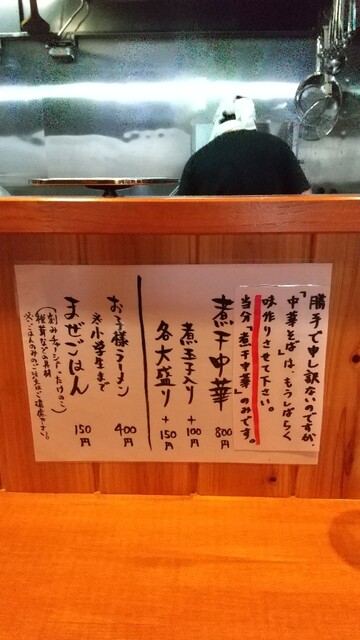 勝手で申し訳ないのですが、
「中華そば」は、もうしばらく
味作りさせて下さい。
当分「煮干中華」のみです。
煮干中華 800円
煮玉子入り + 100円
各大盛り + 150円
お子様ラーメン 400円
※小学生まで
まぜごはん 150円
(刻みチャーシュー、たけのこ
椎茸などの具材
※ごはんのみのご注文はご遠慮下さい。